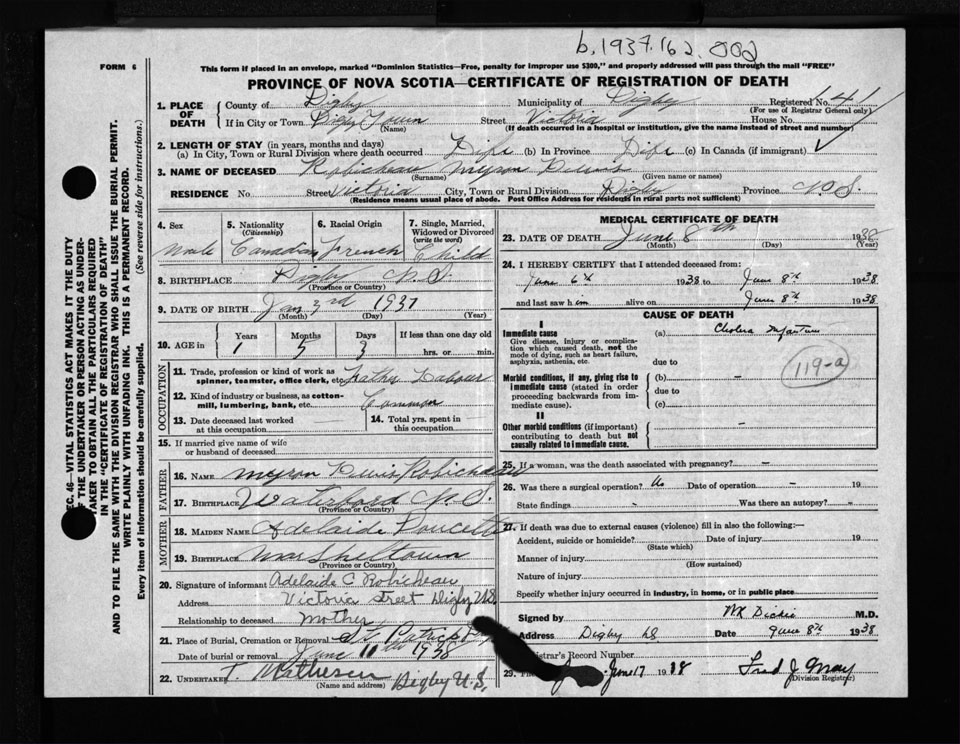 b. 1937.162.002
FORM 6
This form if placed in an envelope, marked "Dominion Statistics—Free, penalty for improper use $300," and properly addressed will pass through the mail "FREE"
PROVINCE OF NOVA SCOTIA—CERTIFICATE OF REGISTRATION OF DEATH
1. PLACE OF DEATH
County of Digby Municipality of Digby Registered No. 41
(For use of Registrar General only)
If in City or Town Digby Town Street Victoria House No.
(Name) (If death occurred in a hospital or institution, give the name instead of street and number)
2. LENGTH OF STAY (in years, months and days)
(a) In City, Town or Rural Division where death occurred Life (b) In Province Life (c) In Canada (if immigrant)
3. NAME OF DECEASED Robicheau Myron Lewis
(Surname) (Given name or names)
RESIDENCE No. Street Victoria City, Town or Rural Division Digby Province N.S.
(Residence means usual place of abode. Post Office Address for residents in rural parts not sufficient)
4. Sex 5. Nationality (Citizenship) 6. Racial Origin 7. Single, Married, Widowed or Divorced (write the word)
Male Canadian French Child
8. BIRTHPLACE Digby N.S.
(Province or Country)
9. DATE OF BIRTH Jan 3rd 1937
(Month) (Day) (Year)
10. AGE in Years Months Days If less than one day old
1 5 3 hrs. or min.
OCCUPATION
11. Trade, profession or kind of work as spinner, teamster, office clerk, etc. Father Labour
12. Kind of industry or business, as cotton-mill, lumbering, bank, etc. Common
13. Date deceased last worked at this occupation
14. Total yrs. spent in this occupation
15. If married give name of wife or husband of deceased
FATHER
16. Name Myron Lewis Robicheau
17. Birthplace Waterford N.S.
(Province or Country)
MOTHER
18. Maiden Name Adelaide Doucette
19. Birthplace Marshelltown
(Province or Country)
20. Signature of informant Adelaide C Robicheau
Address Victoria Street Digby N.S.
Relationship to deceased Mother
21. Place of Burial, Cremation or Removal St Patricks
Date of burial or removal June 11th 1938
22. UNDERTAKER T. Matheson Digby N.S.
(Name and address)
MEDICAL CERTIFICATE OF DEATH
23. DATE OF DEATH June 8th 1938
(Month) (Day) (Year)
24. I HEREBY CERTIFY that I attended deceased from:
June 6th 1938 to June 8th 1938
and last saw him alive on June 8th 1938
CAUSE OF DEATH
I
Immediate cause (a) Cholera Infantum
Give disease, injury or complication which caused death, not the mode of dying, such as heart failure, asphyxia, asthenia, etc.
due to
119-a
Morbid conditions, if any, giving rise to immediate cause (stated in order proceeding backwards from immediate cause). (b) –
due to
(c)
II
Other morbid conditions (if important) contributing to death but not causally related to immediate cause. –
25. If a woman, was the death associated with pregnancy? –
26. Was there a surgical operation? No Date of operation – 19
State findings – Was there an autopsy? –
27. If death was due to external causes (violence) fill in also the following:—
Accident, suicide or homicide? Date of injury 19
(State which)
Manner of injury
(How sustained)
Nature of injury
Specify whether injury occurred in industry, in home, or in public place
Signed by M.D.
Address Digby NS Date June 8th 1938
Registrar's Record Number
June 17 1938 Fred J. May
(Division Registrar)
SEC. 46—VITAL STATISTICS ACT MAKES IT THE DUTY
OF THE UNDERTAKER OR PERSON ACTING AS UNDERTAKER TO OBTAIN ALL THE PARTICULARS REQUIRED
IN THE "CERTIFICATE OF REGISTRATION OF DEATH"
AND TO FILE THE SAME WITH THE DIVISION REGISTRAR WHO SHALL ISSUE THE BURIAL PERMIT.
WRITE PLAINLY WITH UNFADING INK. THIS IS A PERMANENT RECORD.
Every item of information should be carefully supplied. (See reverse side for instructions.)